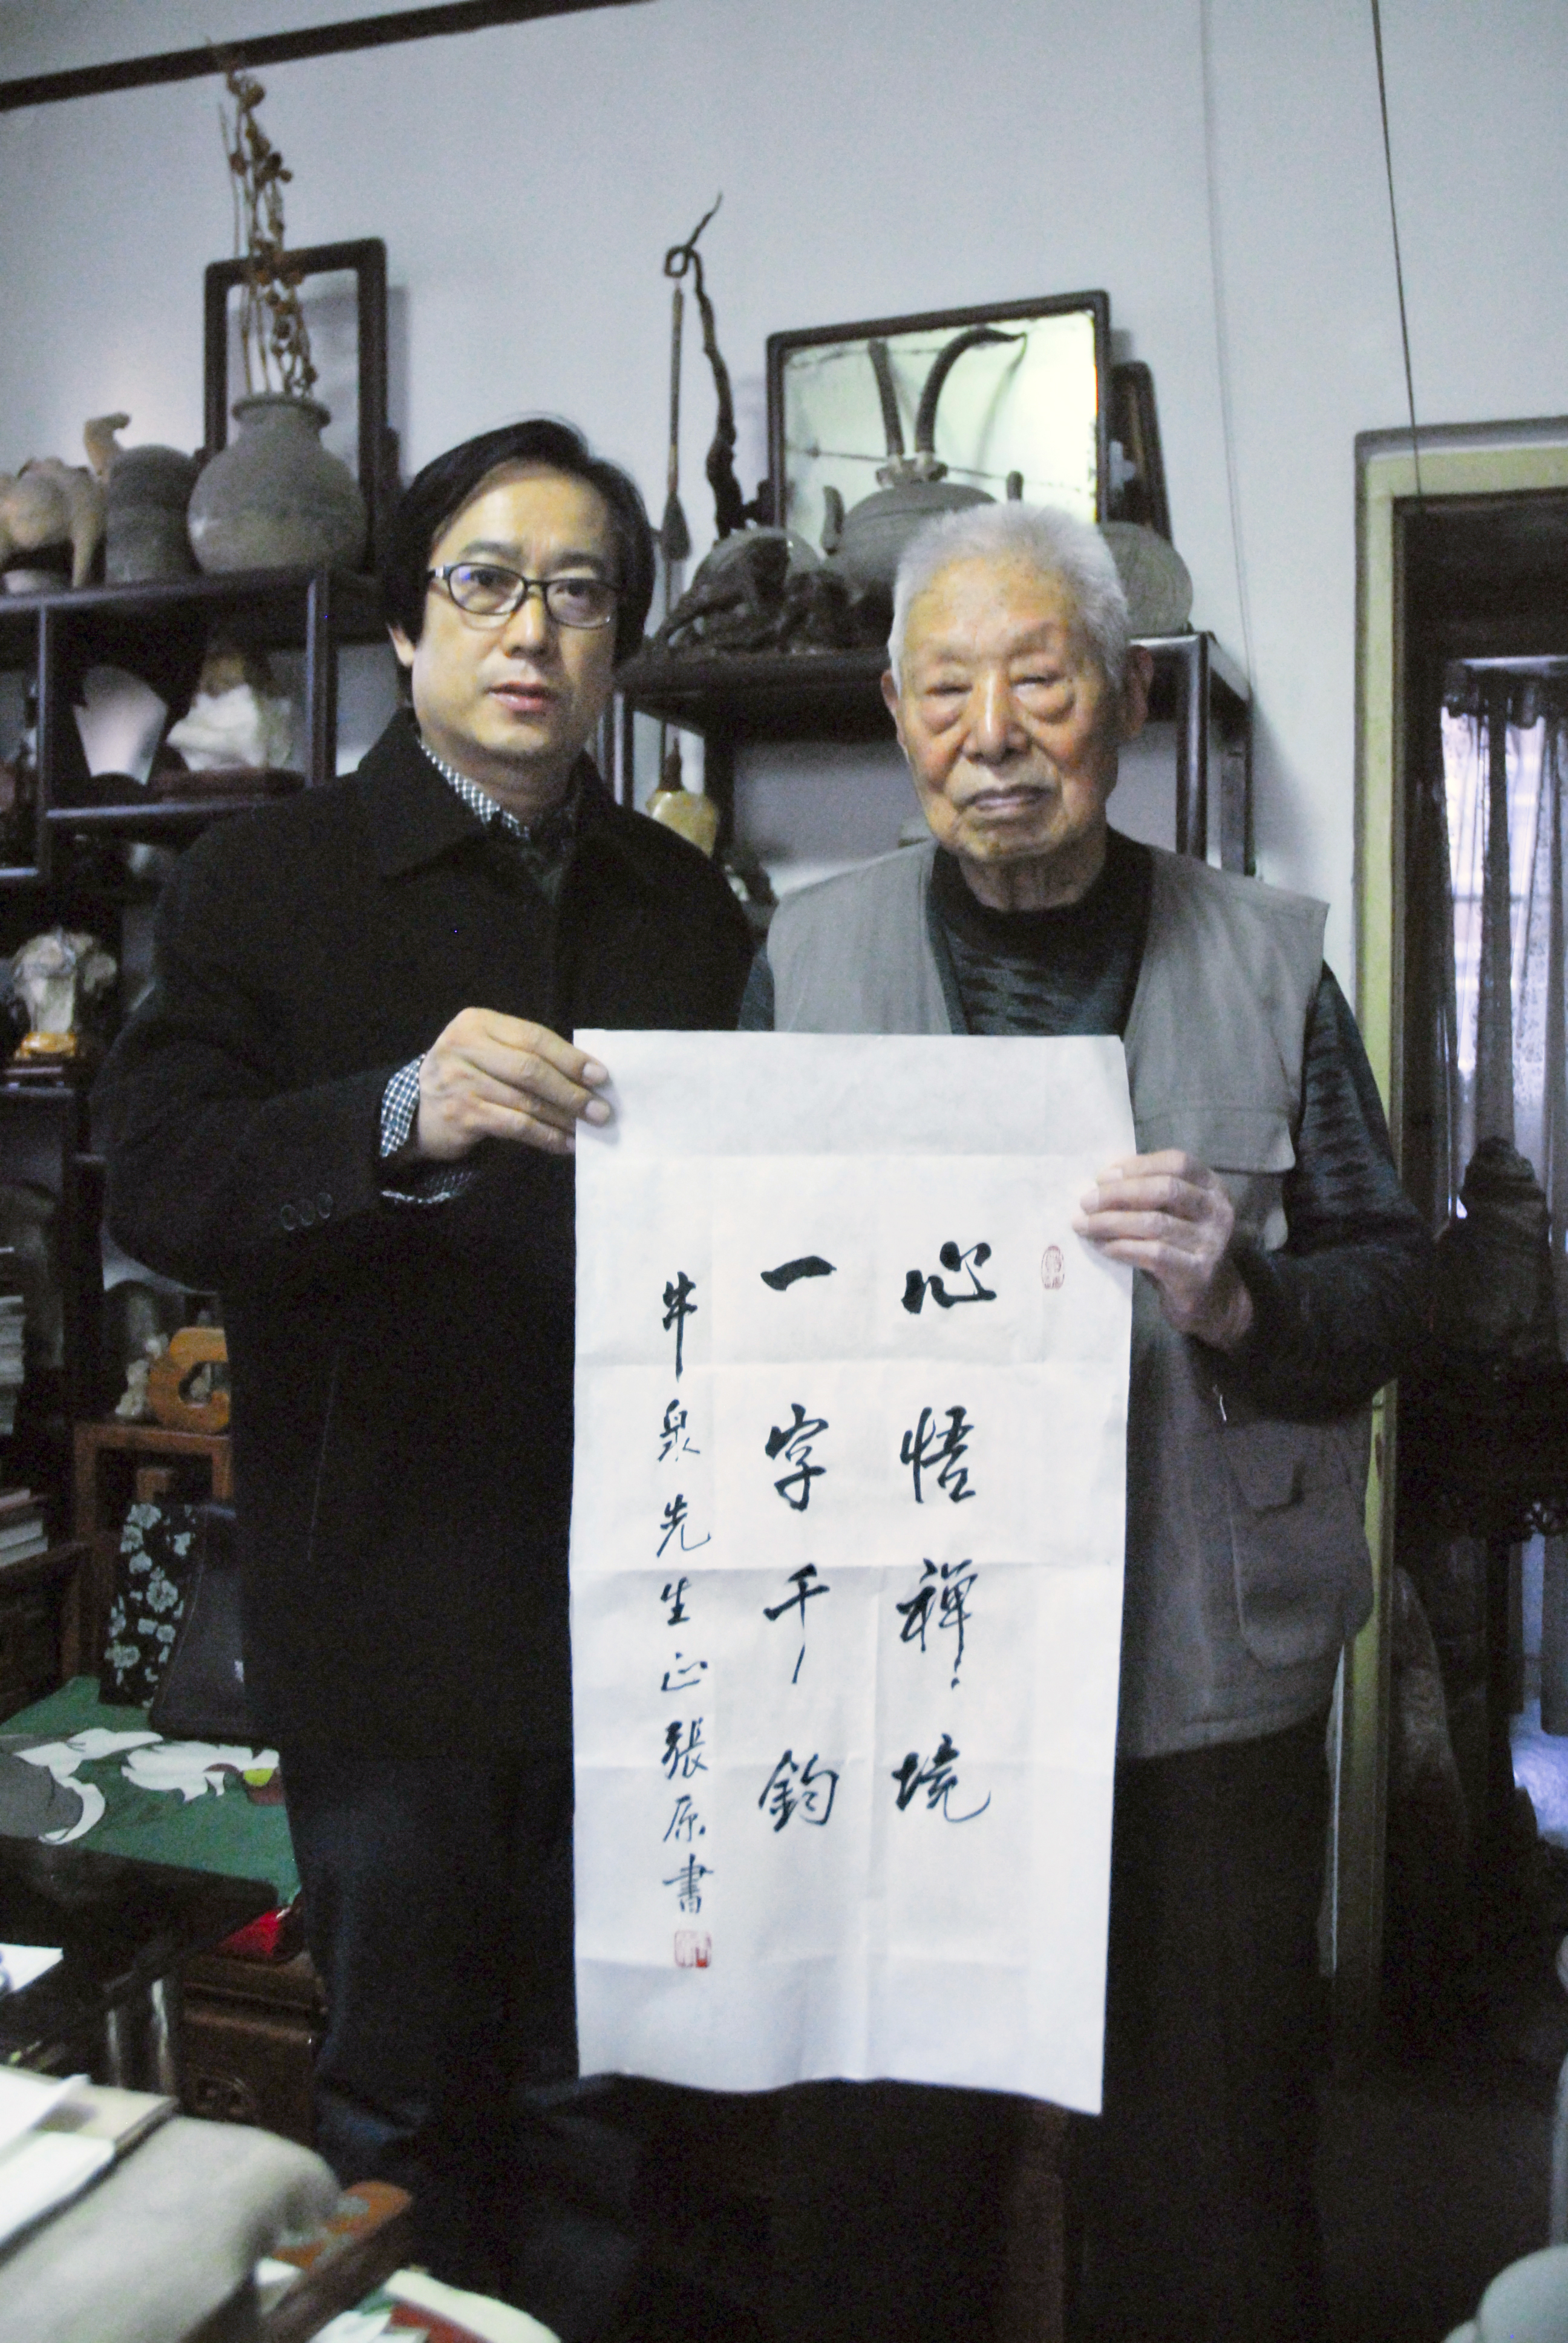 心悟禪境
一字千鈞
牛泉先生正張原書